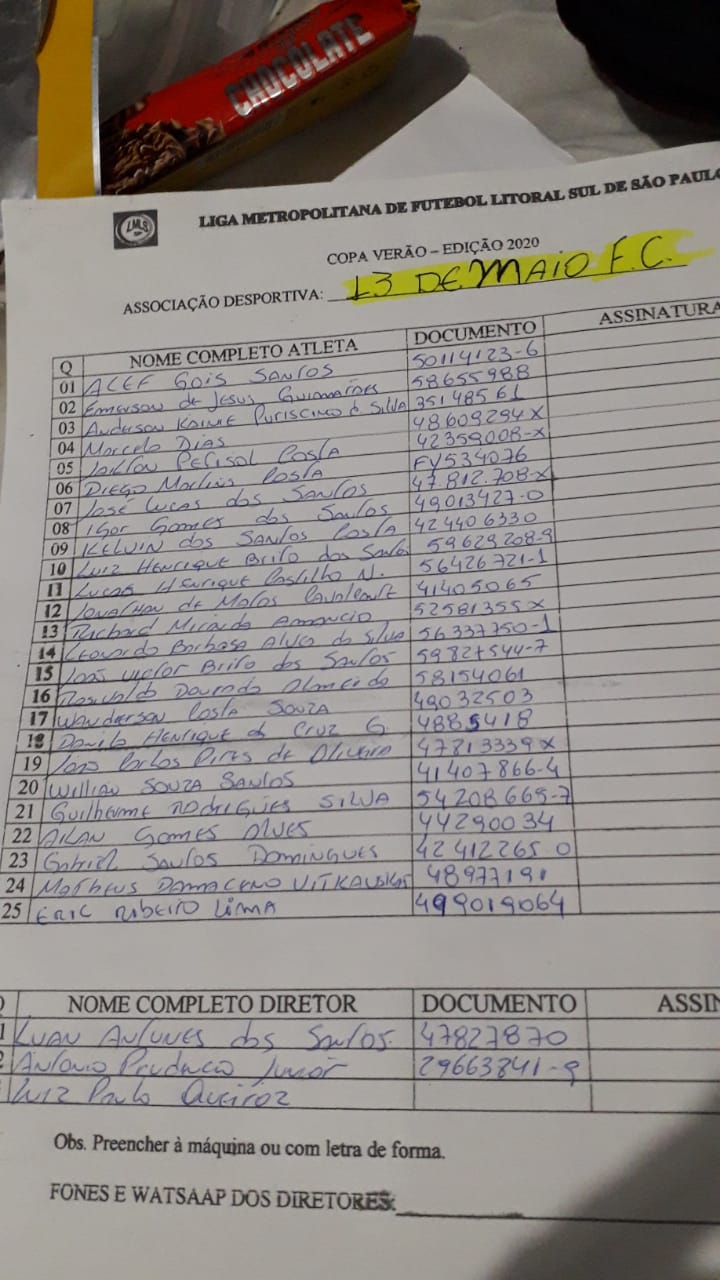 CHOCOLATE
LMS
LIGA METROPOLITANA DE FUTEBOL LITORAL SUL DE SÃO PAULO
COPA VERÃO – EDIÇÃO 2020
ASSOCIAÇÃO DESPORTIVA: 13 DE MAIO F.C.
Q NOME COMPLETO ATLETA DOCUMENTO ASSINATURA
01 ALEF GOIS SANTOS 50114123-6
02 Emerson de Jesus Guimarães 58655988
03 Anderson Puriscino e Silva 35148561
04 Marcelo Dias 48609294X
05 Costa 42359008-X
06 DIEGO Martins Costa FY534076
07 José Lucas dos Santos 47.812.708-X
08 IGOR Gomes dos Santos 49013427-0
09 KELVIN dos SANTOS Costa 424406330
10 LUIZ HENRIQUE BRITO dos Santos 59629208-9
11 LUCAS HENRIQUE Castilho N. 56426721-1
12 Jonathan de Matos Cavalcante 41405065
13 Richard Amancio 52581355X
14 Leonardo Barbosa Alves da Silva 56337750-1
15 João Victor Brito dos Santos 59827544-7
16 Rosivaldo Dourado Almeida 58154061
17 Wanderson Costa SOUZA 49032503
18 Danilo HENRIQUE da CRUZ G 4885418
19 João Carlos Pires de Oliveira 47213339X
20 WILLIAN SOUZA SANTOS 41407866-4
21 Guilherme RODRIGUES SILVA 54208665-7
22 ALAN GOMES ALVES 44290034
23 Gabriel Santos DOMINGUES 42412265 0
24 MATHEUS DAMACENO VITKAUSKAS 48977191
25 ERIC RIBEIRO LIMA 499019064
NOME COMPLETO DIRETOR DOCUMENTO ASSIN
1 LUAN ANTUNES dos Santos. 47827870
2 Antonio Junior 29663841-9
Luiz Paulo Queiroz
Obs. Preencher à máquina ou com letra de forma.
FONES E WATSAAP DOS DIRETORES: